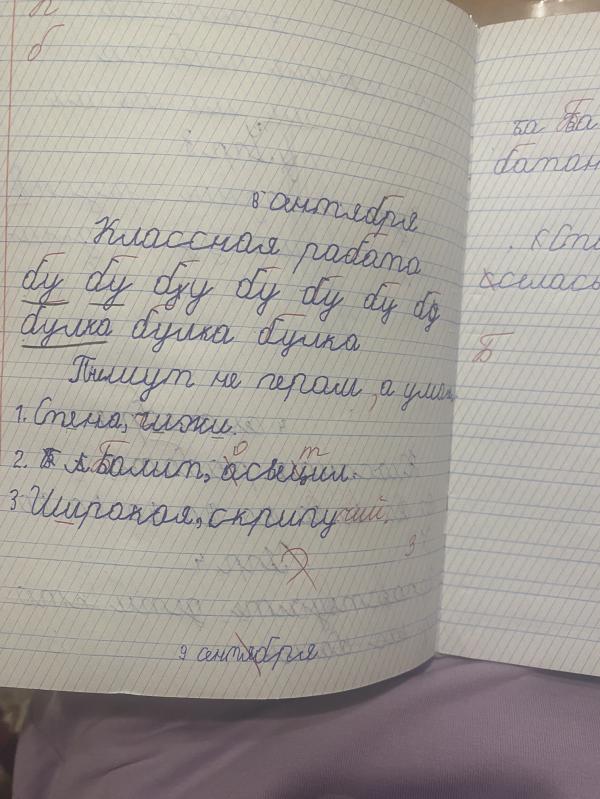 б
8 сентября
Классная рабата
бу бу бу бу бу бу бу
булка булка булка
Пишут не пером, а умом
1. Стена, чижи.
2. Балит,
3 Широкая, скрипучий.
9 сентября
ба Ба
батан
Б